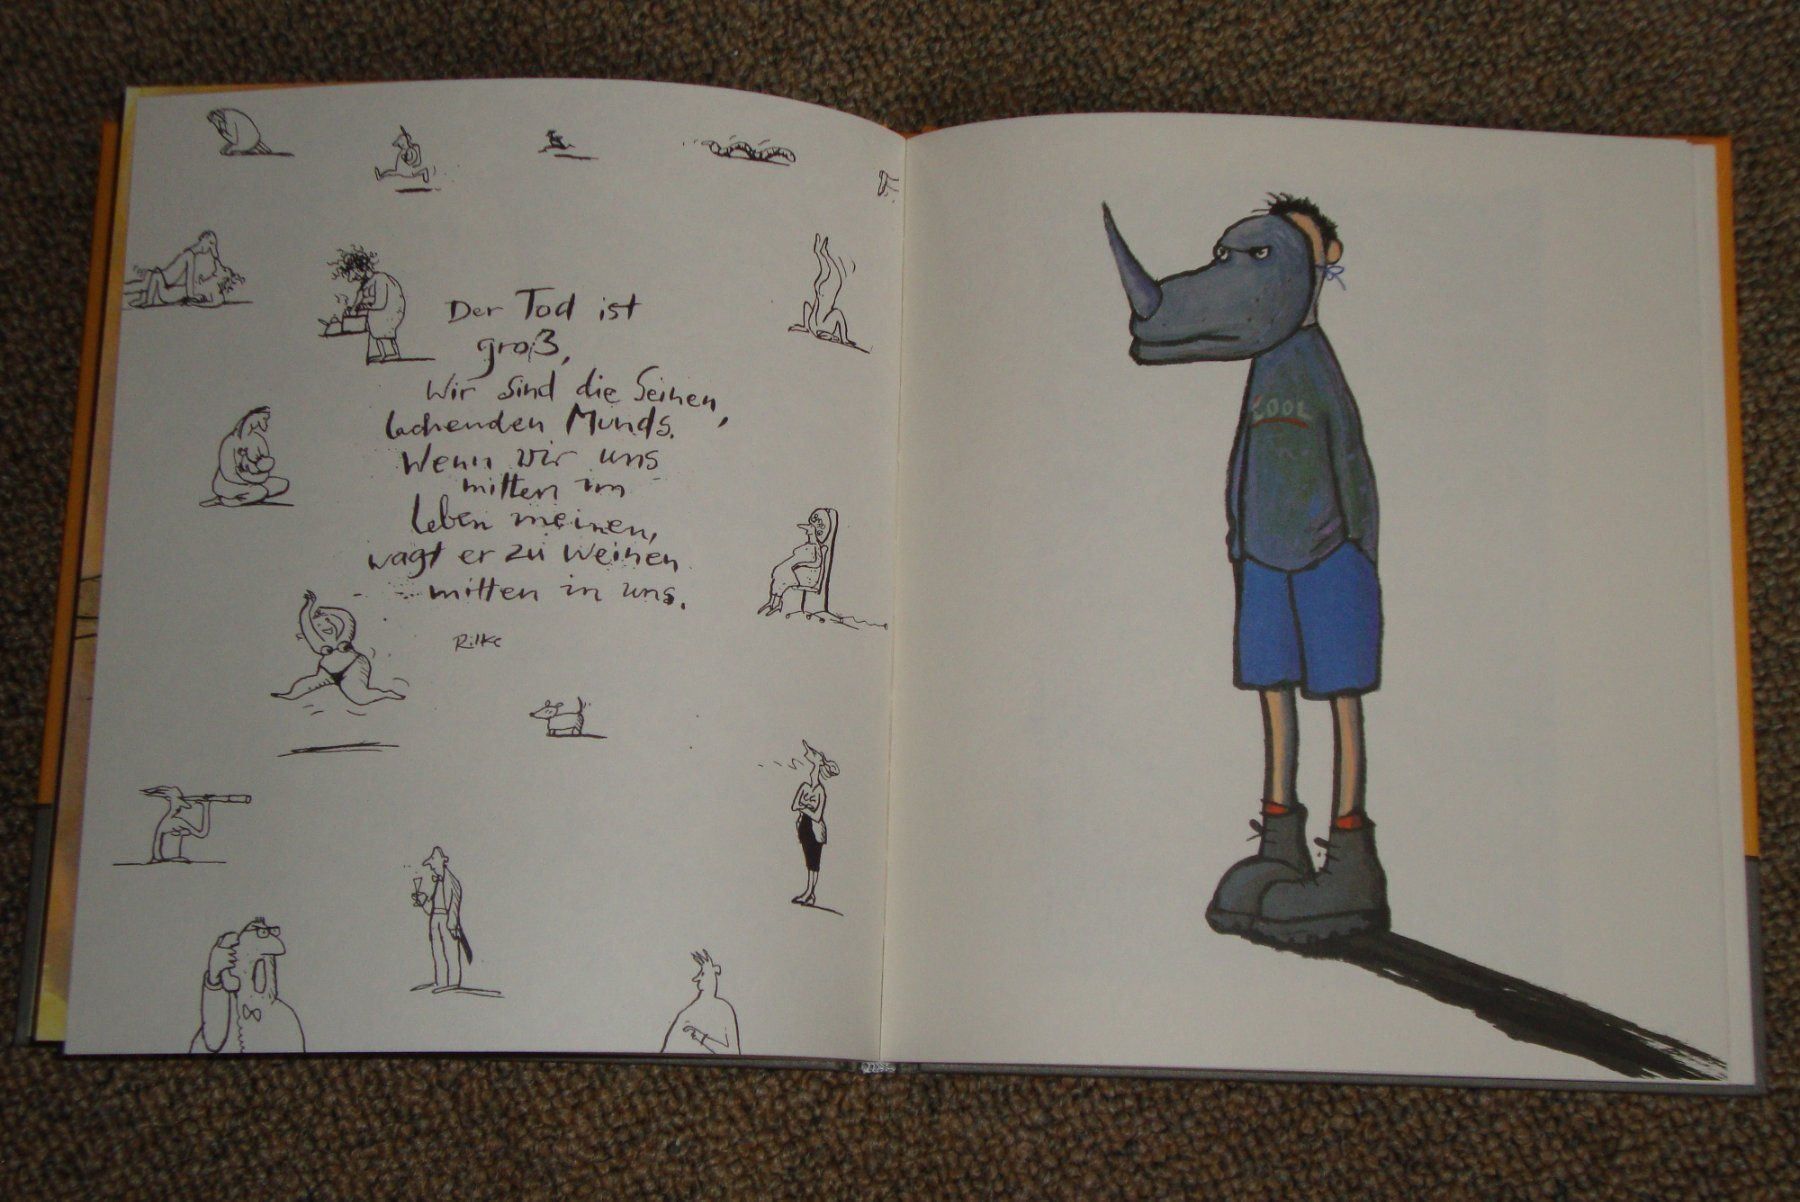 Der Tod ist
groß,
Wir sind die Seinen,
lachenden Munds.
Wenn wir uns
mitten im
Leben meinen,
wagt er zu weinen
mitten in uns.
Rilke
COOL